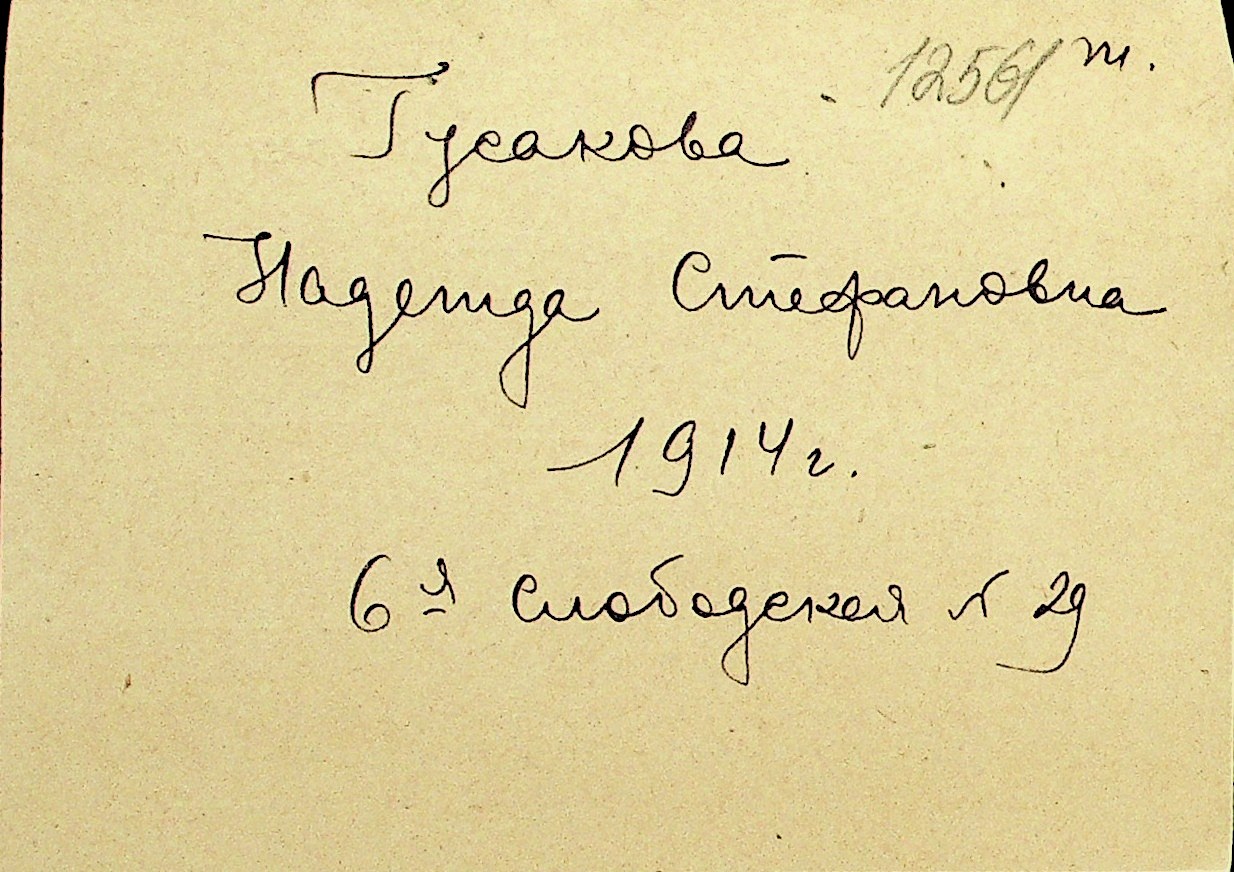 12561 т.
Гусакова
Надежда Стефановна
1914 г.
6я Слободская N 29